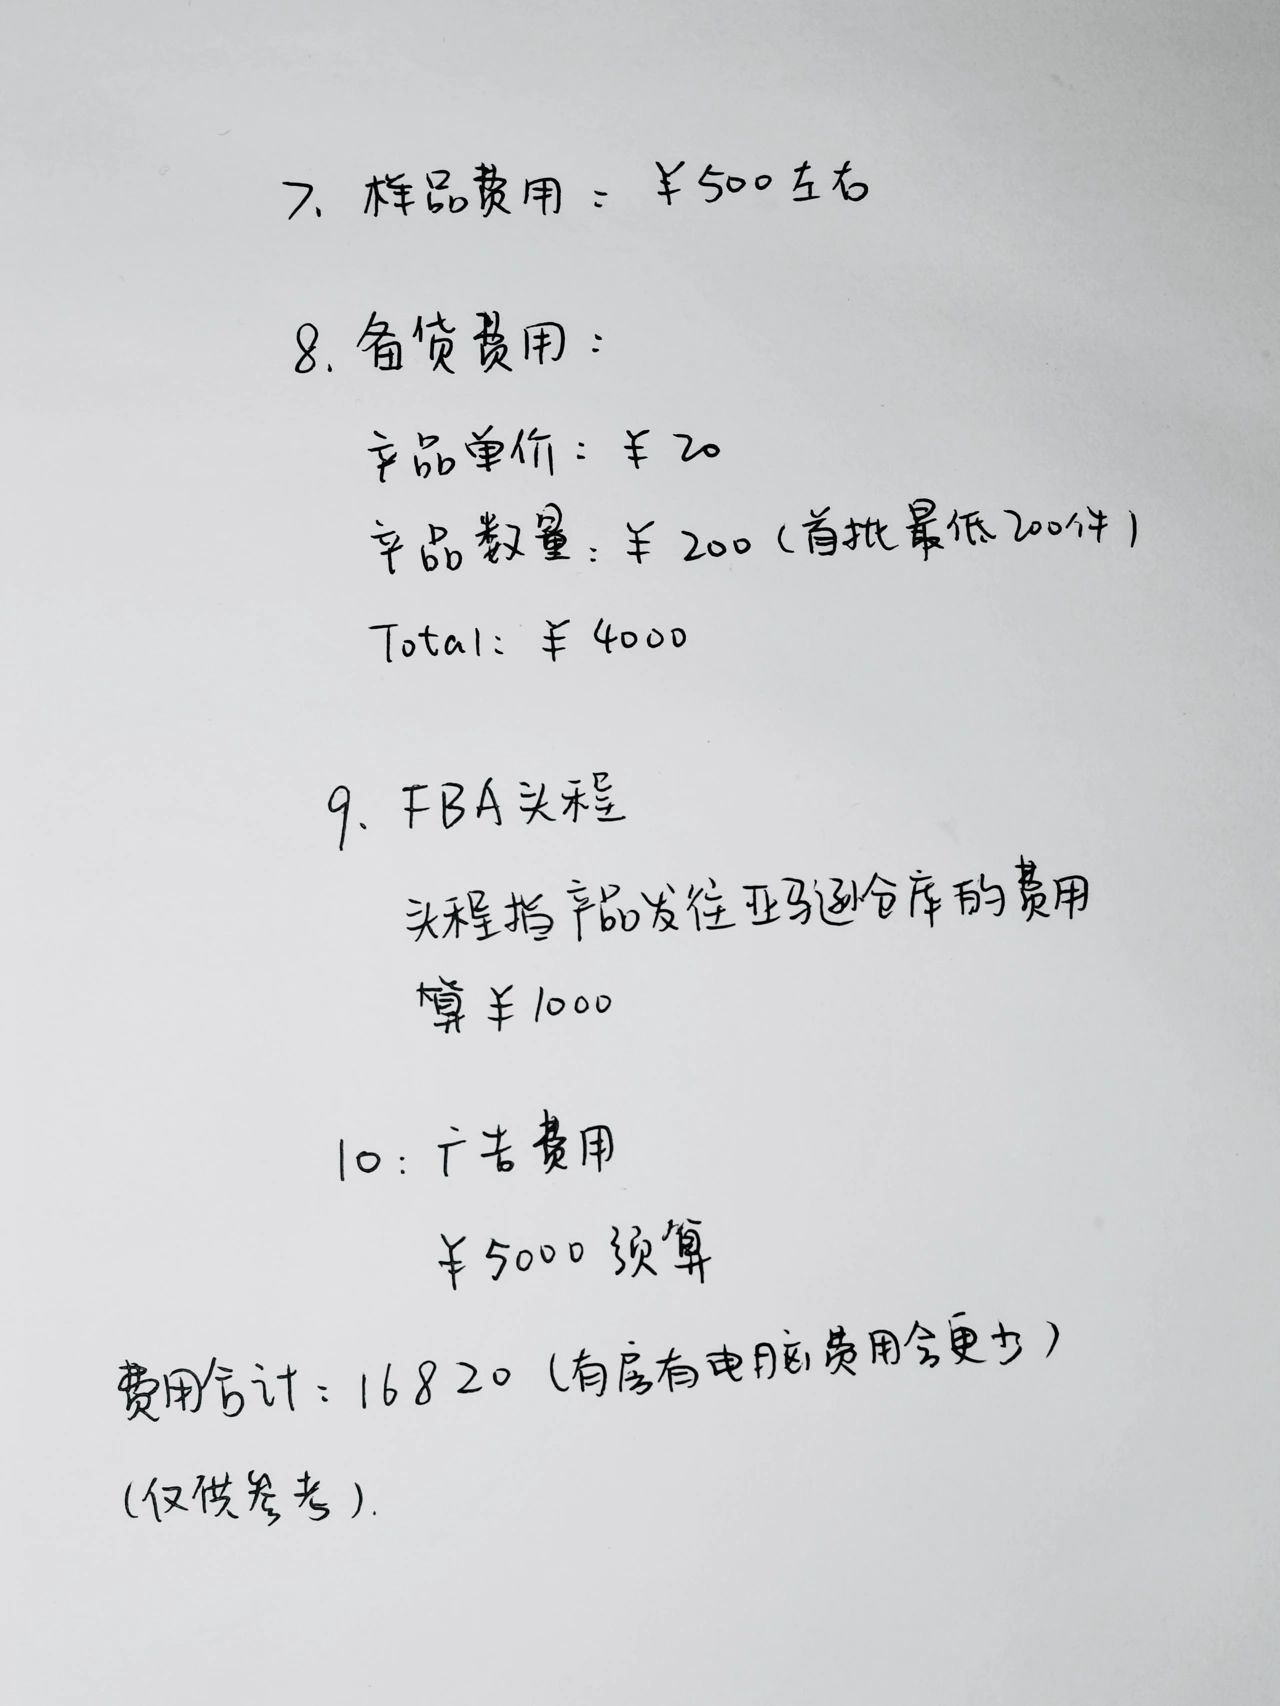 7、样品费用：￥500左右
8. 备货费用：
产品单价：￥20
产品数量：￥200（首批最低200件）
Total：￥4000
9、FBA头程
头程指产品发往亚马逊仓库的费用
算￥1000
10：广告费用
￥5000预算
费用合计：16820（有房有电脑费用会更少）
（仅供参考）.